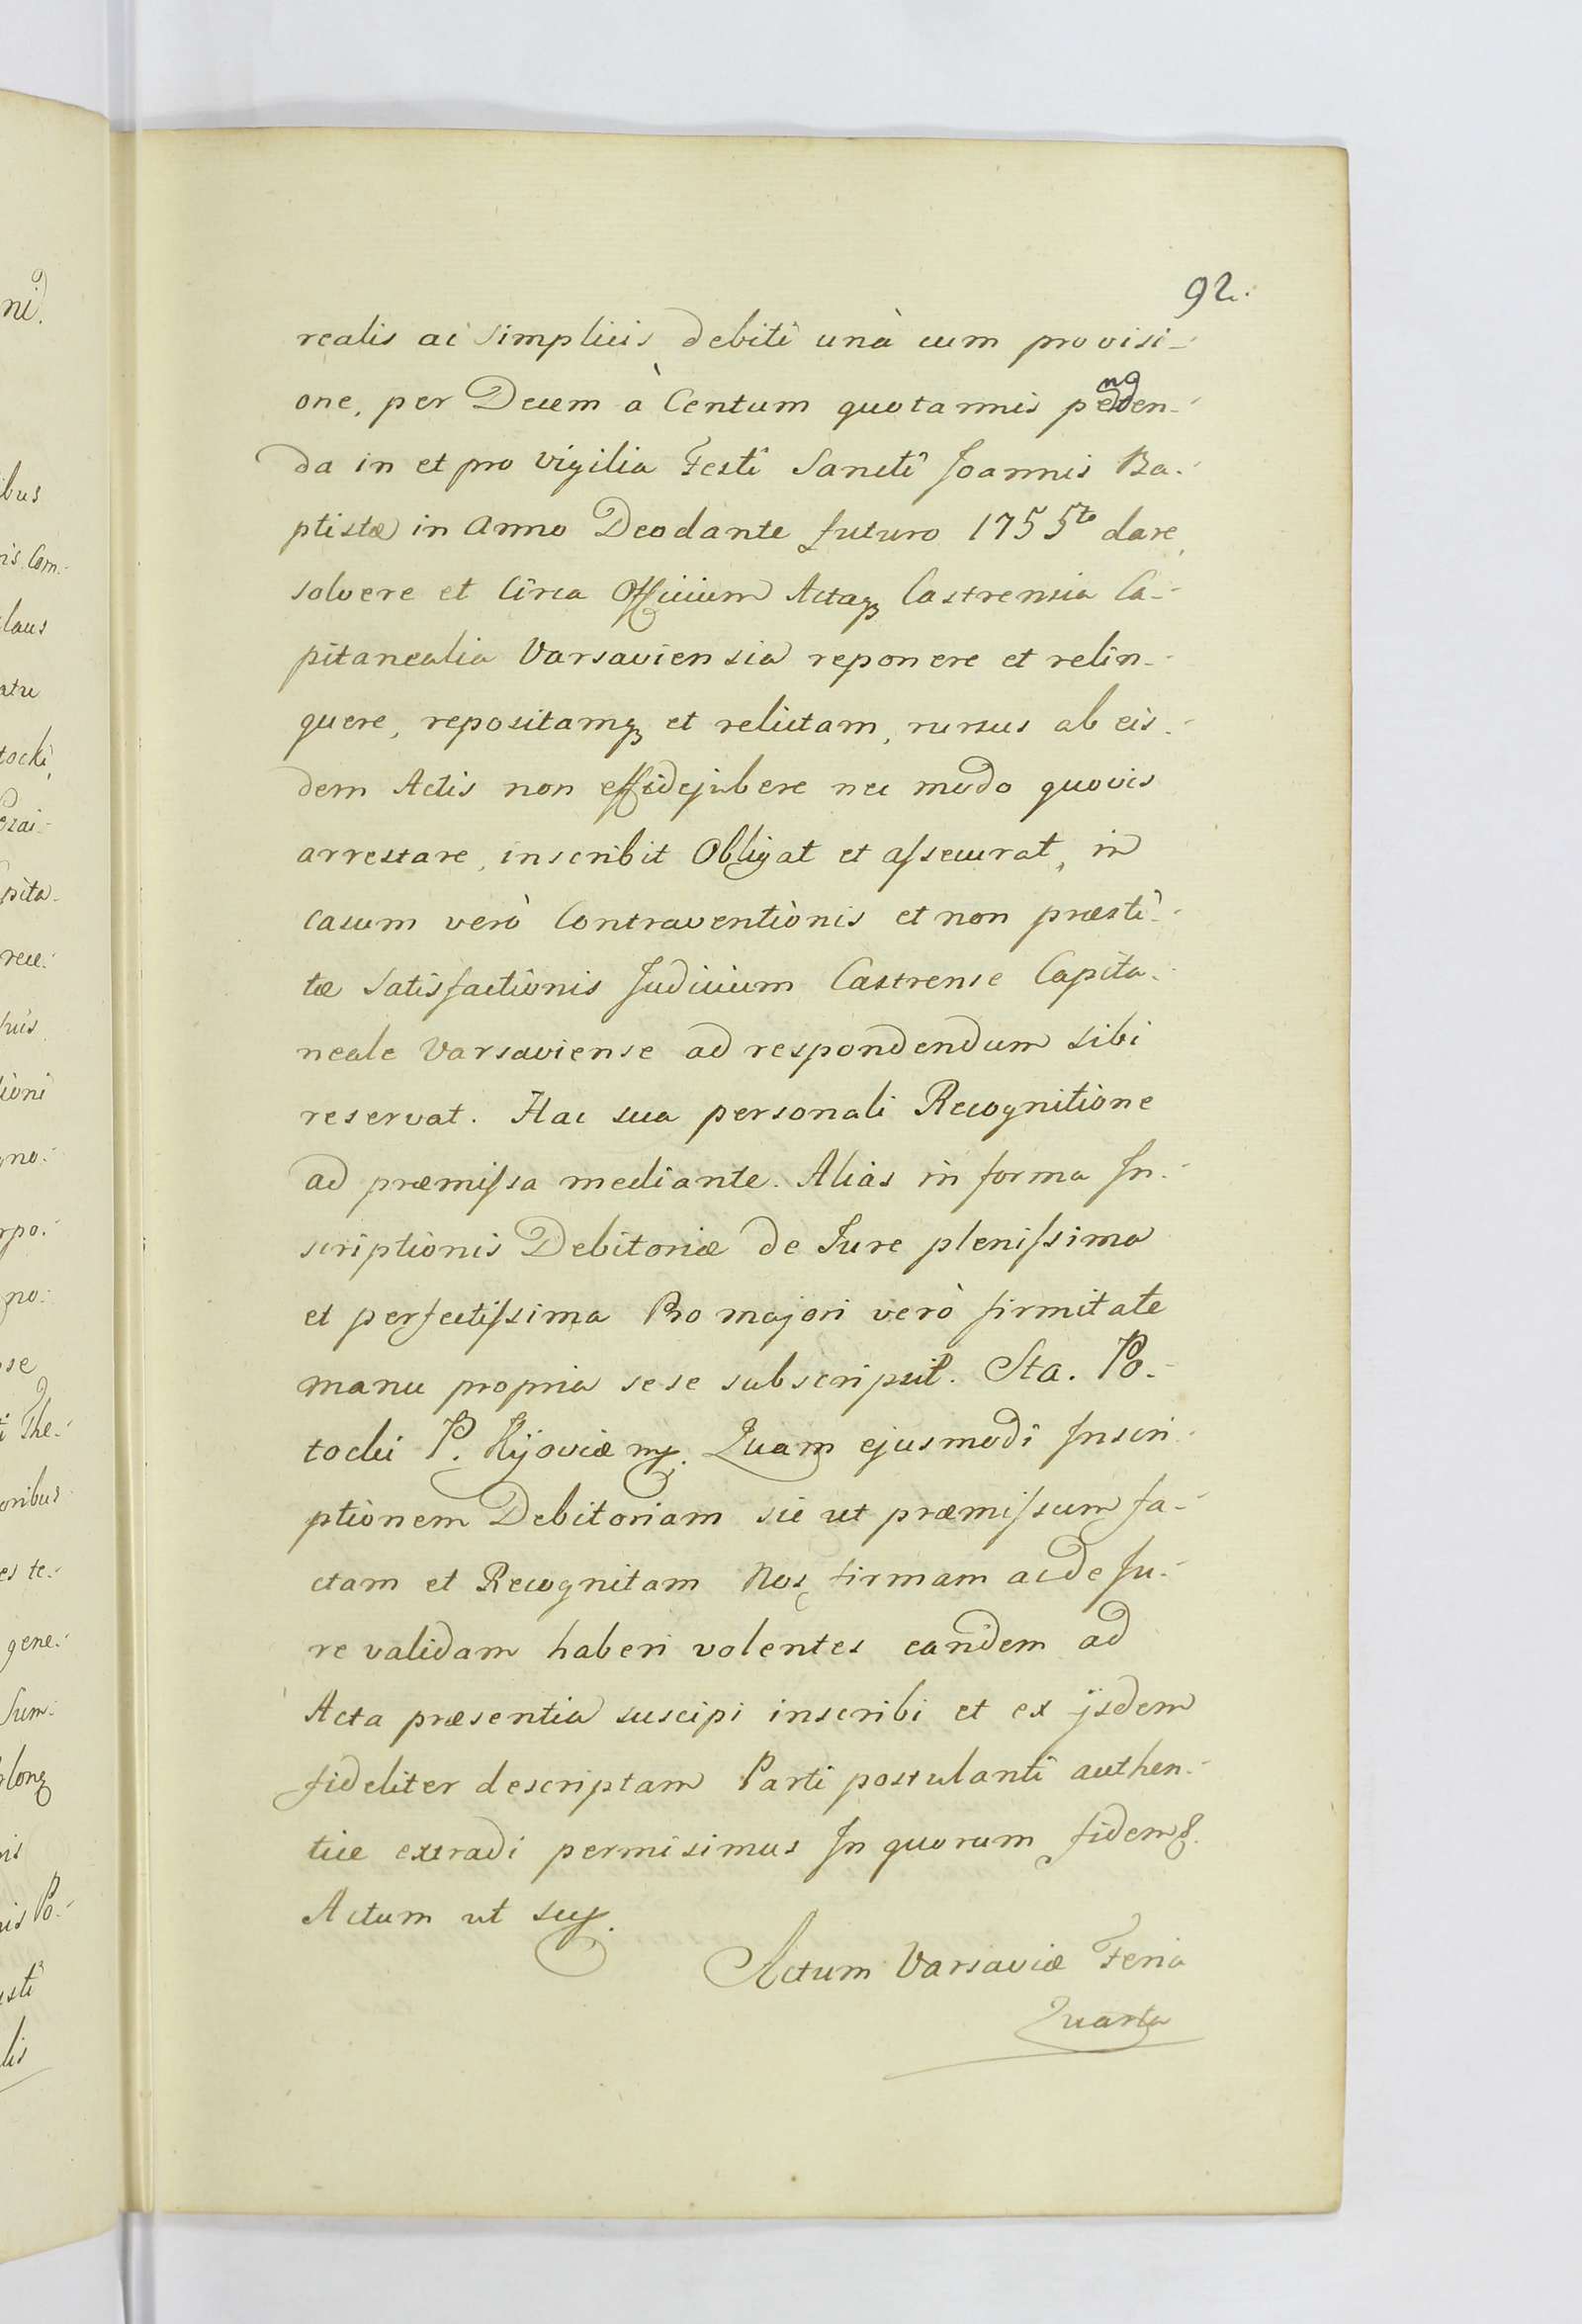 92.
realis ac simplicis debiti unà cum provisi-
one, per Decem à Centum quotannis penden-
da in et pro vigilia Festi Sancti Joannis Ba-
ptistæ in Anno Deo dante futuro 1755to dare,
solvere et Circa Officium Actaqꝫ Castrensia Ca-
pitanealia Varsaviensia reponere et relin-
quere, repositamqꝫ et relictam, rursus ab eis-
dem Actis non effidejubere nec modo quovis
arrestare, inscribit Obligat et assecurat, in
casum verò Contraventionis et non præsti-
tæ satisfactionis Judicium Castrense Capita-
neale Varsaviense ad respondendum sibi
reservat. Hac sua personali Recognitione
ad præmissa mediante. Alias in forma In-
scriptionis Debitoriæ de Jure plenissima
et perfectissima Pro majori verò firmitate
manu propria sese subscripsit. Sta. Po-
tocki P. Kijoviæ mp. Quam ejusmodi Inscri-
ptionem Debitoriam sic ut præmissum fa-
ctam et Recognitam Nos, firmam ac de Ju-
re validam haberi volentes eandem ad
Acta præsentia suscipi inscribi et ex ijsdem
fideliter descriptam Parti postulanti authen-
tice extradi permisimus In quorum fidem &.
Actum ut sup.
Actum Varsaviæ Feria
Quarta
ni.
ibus
ris Com-
laus
atu
tocki,
pita-
rece-
suis
tioni
gno-
rpo-
no-
se
i The-
oribus
es te-
gene-
Sum-
longꝫ
nis
nis Po-
esti
lis